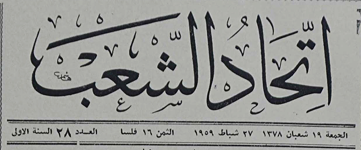 اتحاد الشعب
الجمعة ١٩ شعبان ١٣٧٨ ٢٧ شباط ١٩٥٩ الثمن ١٦ فلسا العدد ٢٨ السنة الاولى